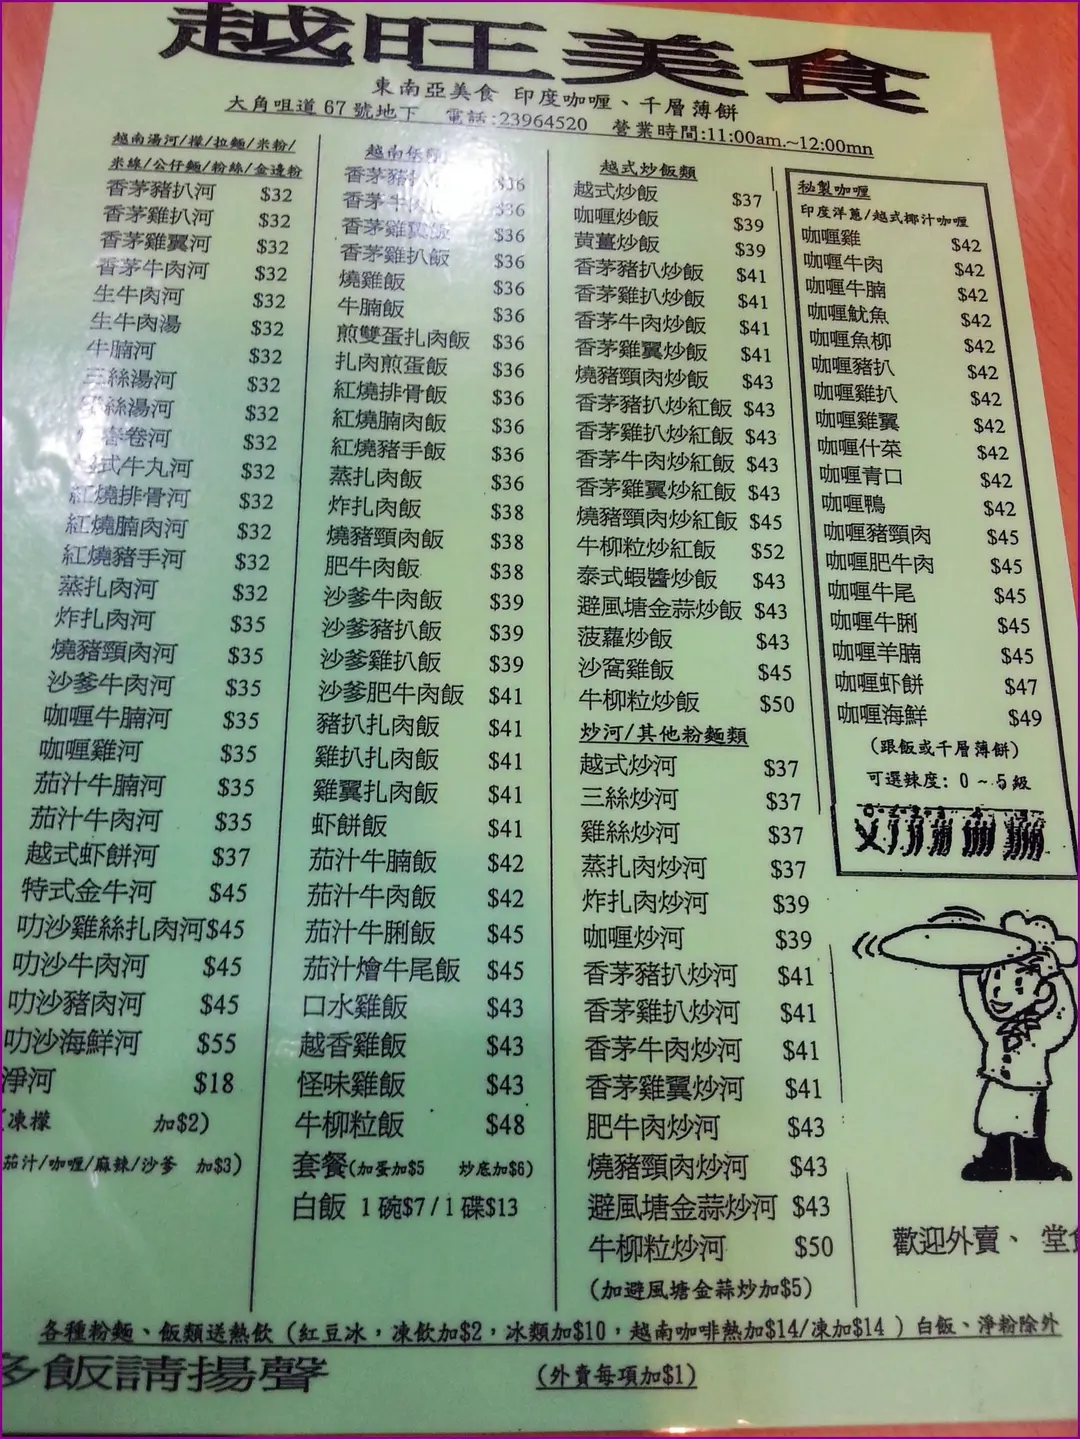 越旺美食
東南亞美食 印度咖喱、千層薄餅
大角咀道67號地下 電話:23964520 營業時間:11:00am.~12:00mn
越南湯河/檬/拉麵/米粉/
米線/公仔麵/粉絲/金邊粉
香茅豬扒河 $32
香茅雞扒河 $32
香茅雞翼河 $32
香茅牛肉河 $32
生牛肉河 $32
生牛肉湯 $32
牛腩河 $32
三絲湯河 $32
絲湯河 $32
春卷河 $32
越式牛丸河 $32
紅燒排骨河 $32
紅燒腩肉河 $32
紅燒豬手河 $32
蒸扎肉河 $32
炸扎肉河 $35
燒豬頸肉河 $35
沙爹牛肉河 $35
咖喱牛腩河 $35
咖喱雞河 $35
茄汁牛腩河 $35
茄汁牛肉河 $35
越式虾餅河 $37
特式金牛河 $45
叻沙雞絲扎肉河$45
叻沙牛肉河 $45
叻沙豬肉河 $45
叻沙海鮮河 $55
淨河 $18
(凍檬 加$2)
茄汁/咖喱/麻辣/沙爹 加$3)
越南
香茅豬 $36
香茅牛肉 $36
香茅雞翼飯 $36
香茅雞扒飯 $36
燒雞飯 $36
牛腩飯 $36
煎雙蛋扎肉飯 $36
扎肉煎蛋飯 $36
紅燒排骨飯 $36
紅燒腩肉飯 $36
紅燒豬手飯 $36
蒸扎肉飯 $36
炸扎肉飯 $38
燒豬頸肉飯 $38
肥牛肉飯 $38
沙爹牛肉飯 $39
沙爹豬扒飯 $39
沙爹雞扒飯 $39
沙爹肥牛肉飯 $41
豬扒扎肉飯 $41
雞扒扎肉飯 $41
雞翼扎肉飯 $41
虾餅飯 $41
茄汁牛腩飯 $42
茄汁牛肉飯 $42
茄汁牛脷飯 $45
茄汁燴牛尾飯 $45
口水雞飯 $43
越香雞飯 $43
怪味雞飯 $43
牛柳粒飯 $48
套餐(加蛋加$5 炒底加$6)
白飯 1碗$7/1碟$13
越式炒飯類
越式炒飯 $37
咖喱炒飯 $39
黃薑炒飯 $39
香茅豬扒炒飯 $41
香茅雞扒炒飯 $41
香茅牛肉炒飯 $41
香茅雞翼炒飯 $41
燒豬頸肉炒飯 $43
香茅豬扒炒紅飯 $43
香茅雞扒炒紅飯 $43
香茅牛肉炒紅飯 $43
香茅雞翼炒紅飯 $43
燒豬頸肉炒紅飯 $45
牛柳粒炒紅飯 $52
泰式蝦醬炒飯 $43
避風塘金蒜炒飯 $43
菠蘿炒飯 $43
沙窩雞飯 $45
牛柳粒炒飯 $50
炒河/其他粉麵類
越式炒河 $37
三絲炒河 $37
雞絲炒河 $37
蒸扎肉炒河 $37
炸扎肉炒河 $39
咖喱炒河 $39
香茅豬扒炒河 $41
香茅雞扒炒河 $41
香茅牛肉炒河 $41
香茅雞翼炒河 $41
肥牛肉炒河 $43
燒豬頸肉炒河 $43
避風塘金蒜炒河 $43
牛柳粒炒河 $50
(加避風塘金蒜炒加$5)
秘製咖喱
印度洋蔥/越式椰汁咖喱
咖喱雞 $42
咖喱牛肉 $42
咖喱牛腩 $42
咖喱魷魚 $42
咖喱魚柳 $42
咖喱豬扒 $42
咖喱雞扒 $42
咖喱雞翼 $42
咖喱什菜 $42
咖喱青口 $42
咖喱鴨 $42
咖喱豬頸肉 $45
咖喱肥牛肉 $45
咖喱牛尾 $45
咖喱牛脷 $45
咖喱羊腩 $45
咖喱虾餅 $47
咖喱海鮮 $49
(跟飯或千層薄餅)
可選辣度: 0 ~ 5級
歡迎外賣、堂食
各種粉麵、飯類送熱飲 (紅豆冰，凍飲加$2，冰類加$10，越南咖啡熱加$14/凍加$14 ) 白飯、淨粉除外
多飯請揚聲 (外賣每項加$1)